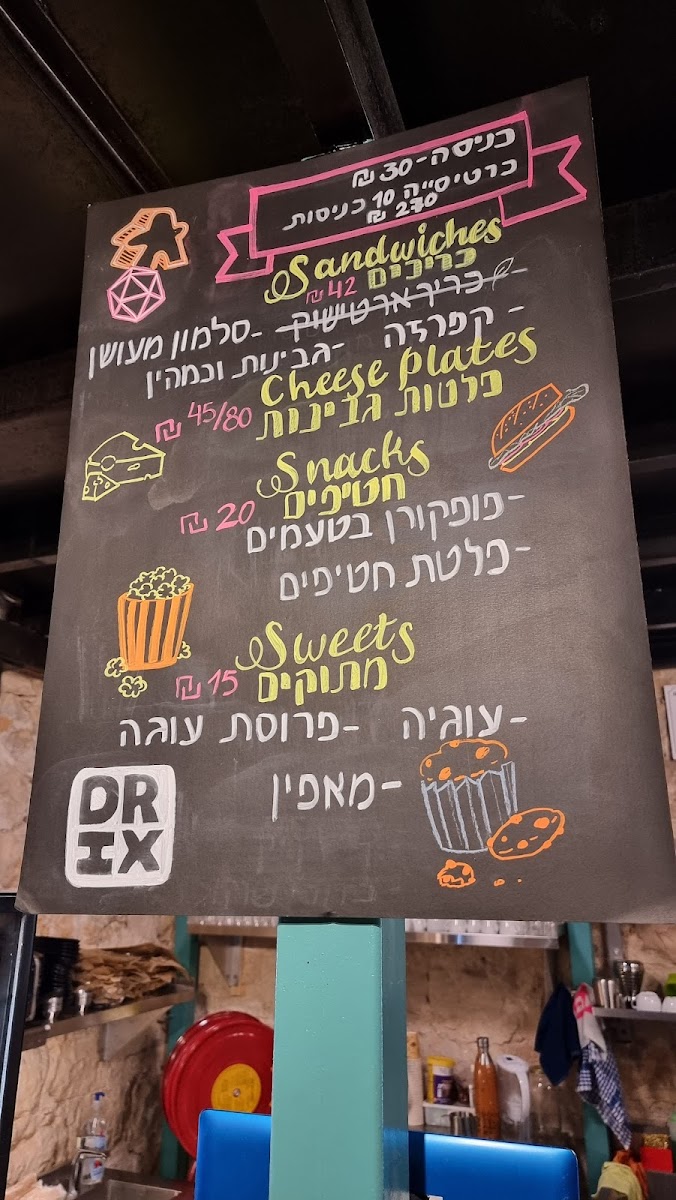 כניסה-30 ₪
כרטיסייה 10 כניסות
270 ₪
Sandwiches
כריכים 42 ₪
-כריך ארטישוק -סלמון מעושן
-קפרזה -גבינות וכמהין
Cheese plates
פלטות גבינות 45/80 ₪
Snacks
חטיפים 20 ₪
-פופקורן בטעמים
-פלטת חטיפים
Sweets
מתוקים 15 ₪
-עוגיה -פרוסת עוגה
-מאפין
DR
IX